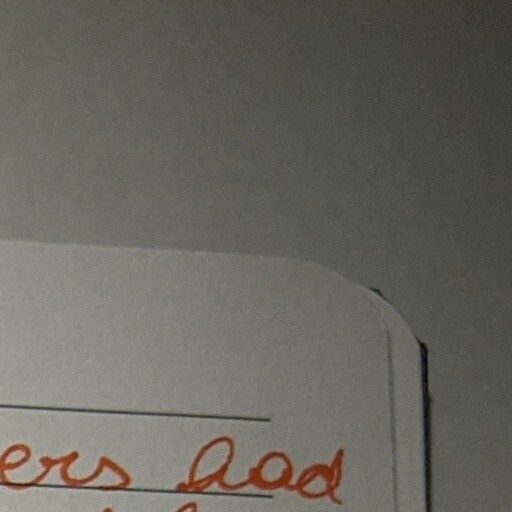 ers had